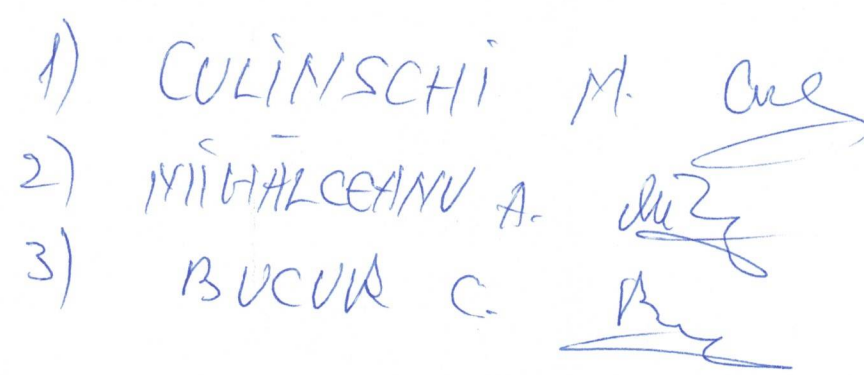 1) CULINSCHI M.
2) MIHALCEANU A.
3) BUCUR C.